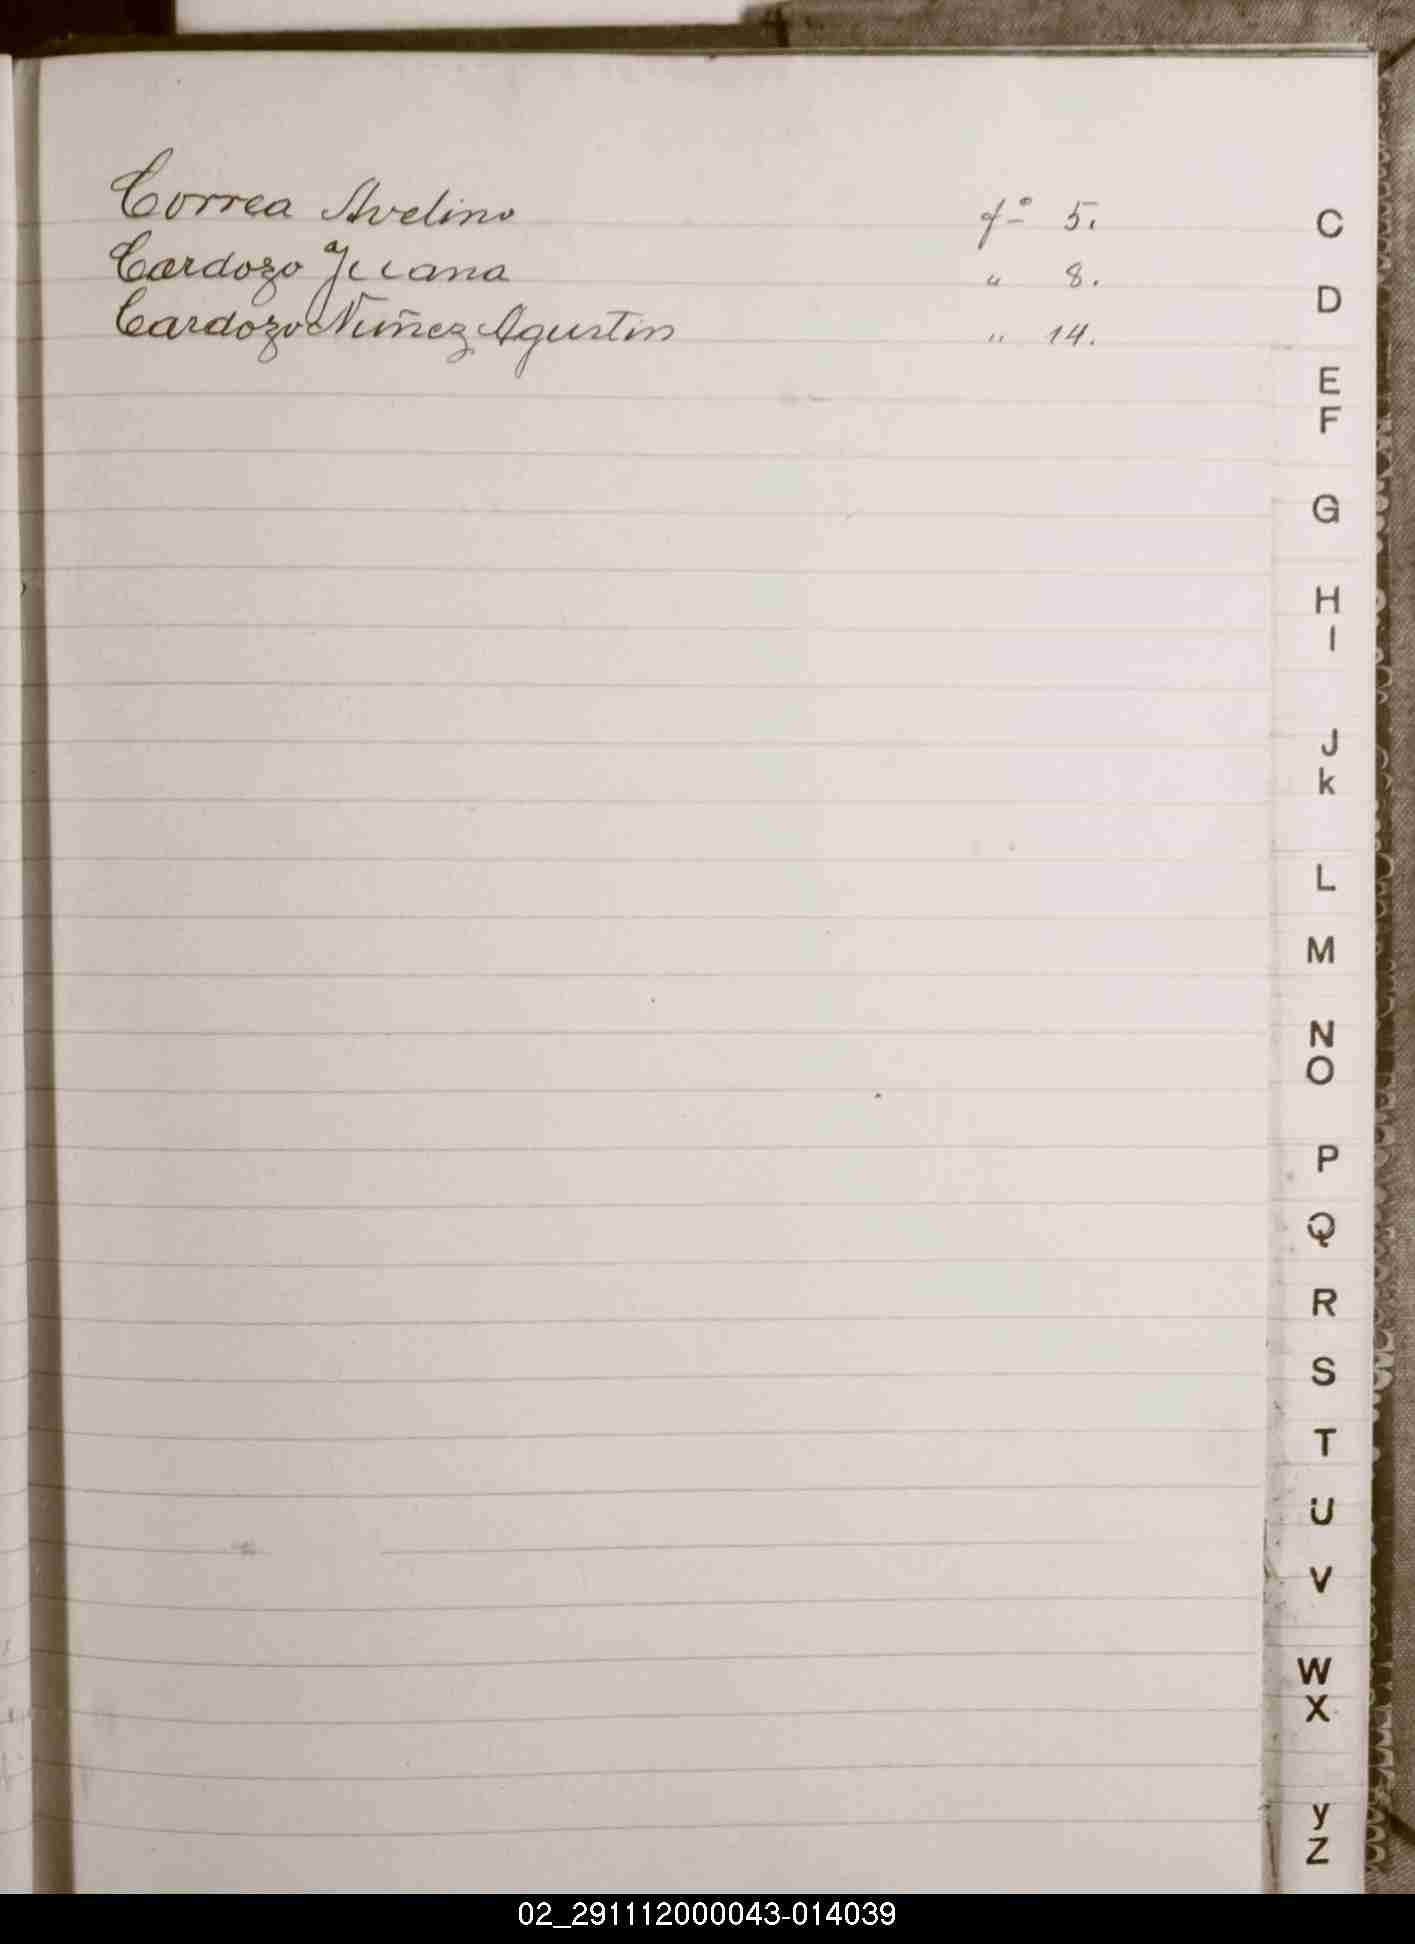 Correa Avelino fº 5.
Cardozo Juana " 8.
Cardozo Nuñez Agustin " 14.
C
D
E
F
G
H
I
J
k
L
M
N
O
P
Q
R
S
T
U
V
W
X
y
Z
02_291112000043-014039